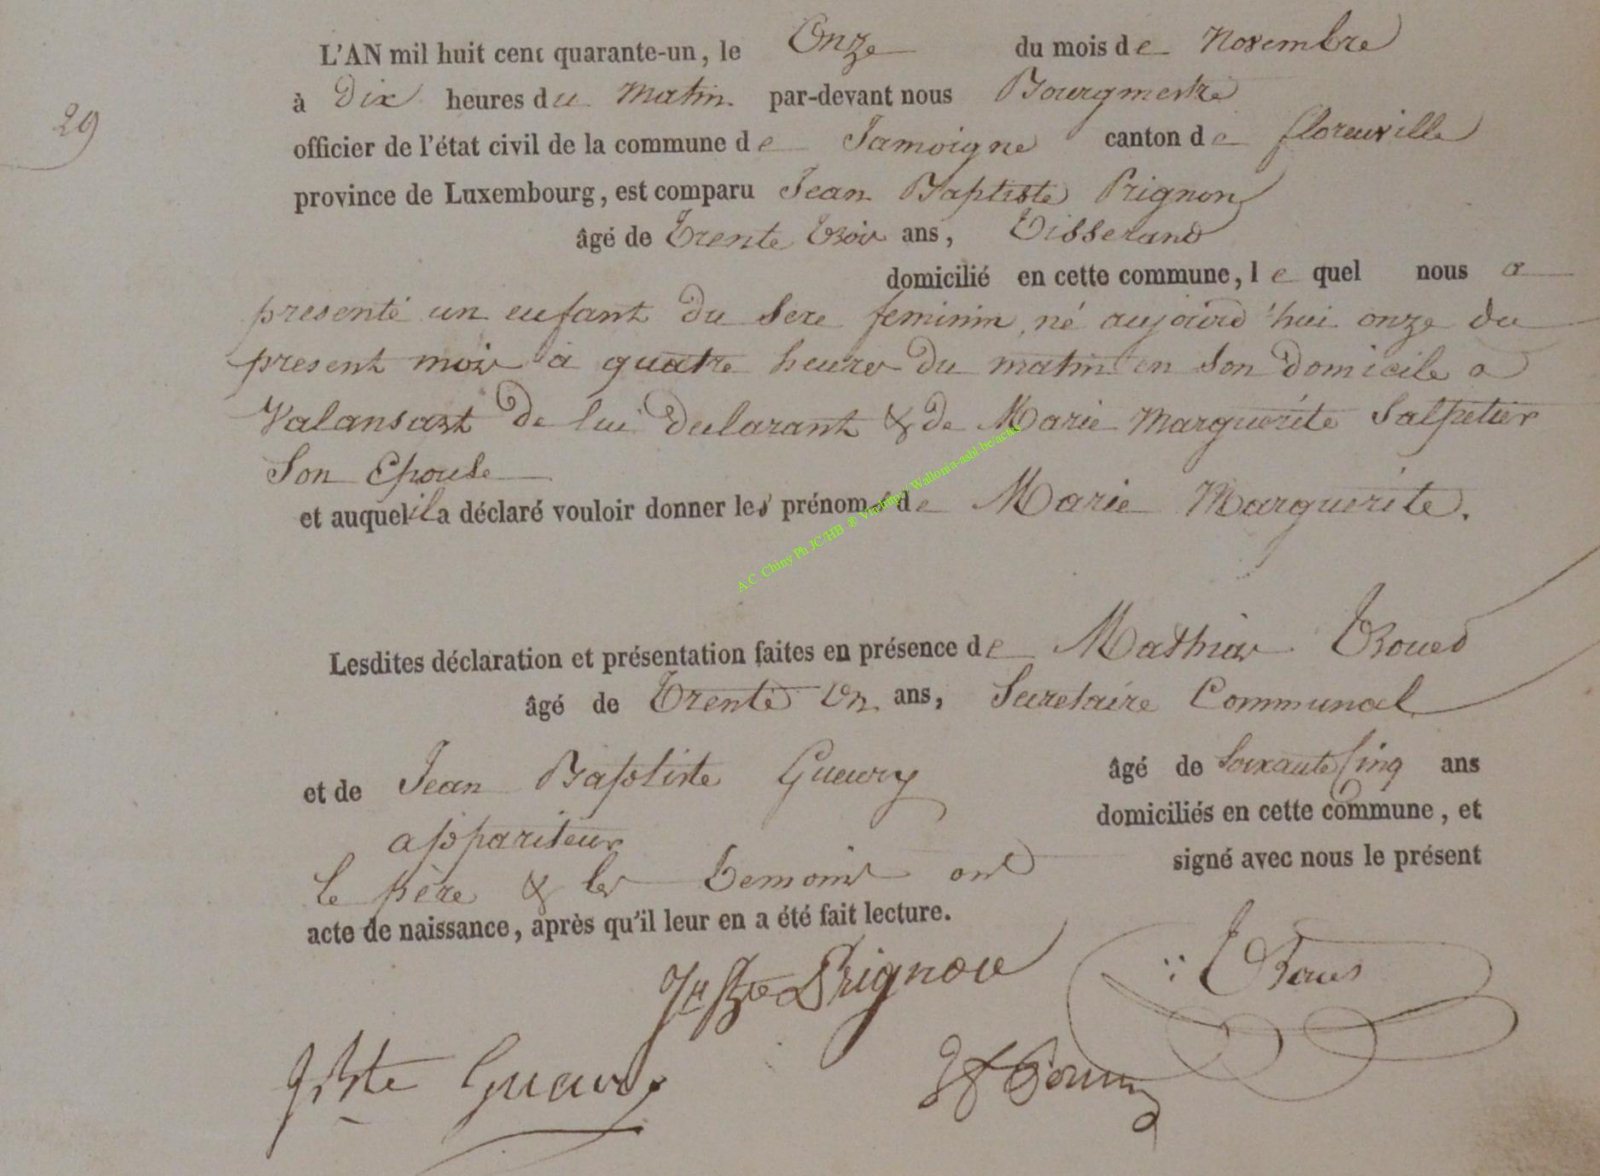 L'AN mil huit cent quarante-un, le Onze du mois de Novembre
à Dix heures du Matin par-devant nous Bourgmestre
29
officier de l'état civil de la commune de Jamoigne canton de florenville
province de Luxembourg, est comparu Jean Baptiste Prignon
âgé de Trente trois ans, Tisserand
domicilié en cette commune, le quel nous a
presenté un enfant du sexe feminin né aujourd'hui onze du
present mois à quatre heures du matin en son domicile a
Valansart de lui declarant & de Marie Marguerite Salpetier
Son Epouse
et auquel il a déclaré vouloir donner les prénoms de Marie Marguerite.
A.C. Chiny Ph JC/HB
Lesdites déclaration et présentation faites en présence de Mathias
âgé de Trente un ans, Secretaire Communal
et de Jean Baptiste Gueury âgé de Soixante Cinq ans
appariteur domiciliés en cette commune, et
le père & les temoins ont signé avec nous le présent
acte de naissance, après qu'il leur en a été fait lecture.
Prignon
Gueury